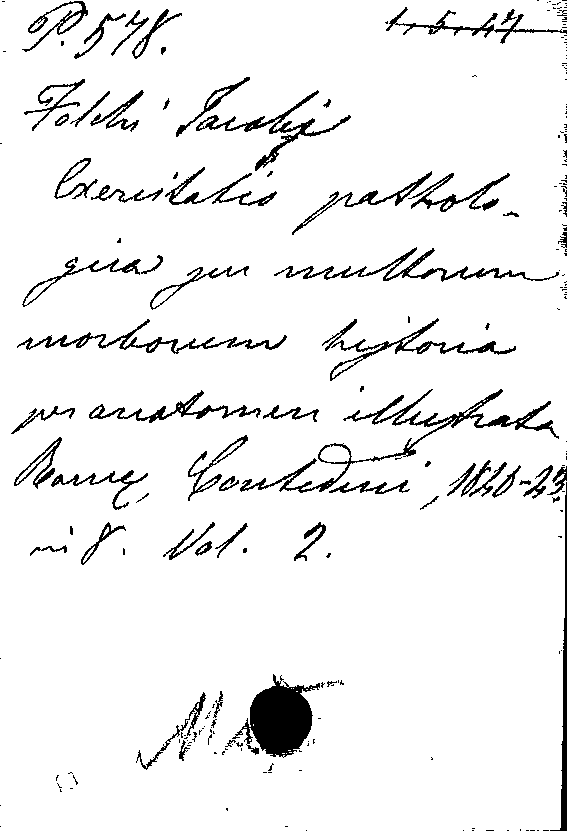 P. 578.
1.5.47
Folchi Jacobi
Exercitatio patholo-
gica seu multorum
morborum historia
per anatomen illustrata
Romæ, Contedini, 1840-43
in 8. Vol. 2.